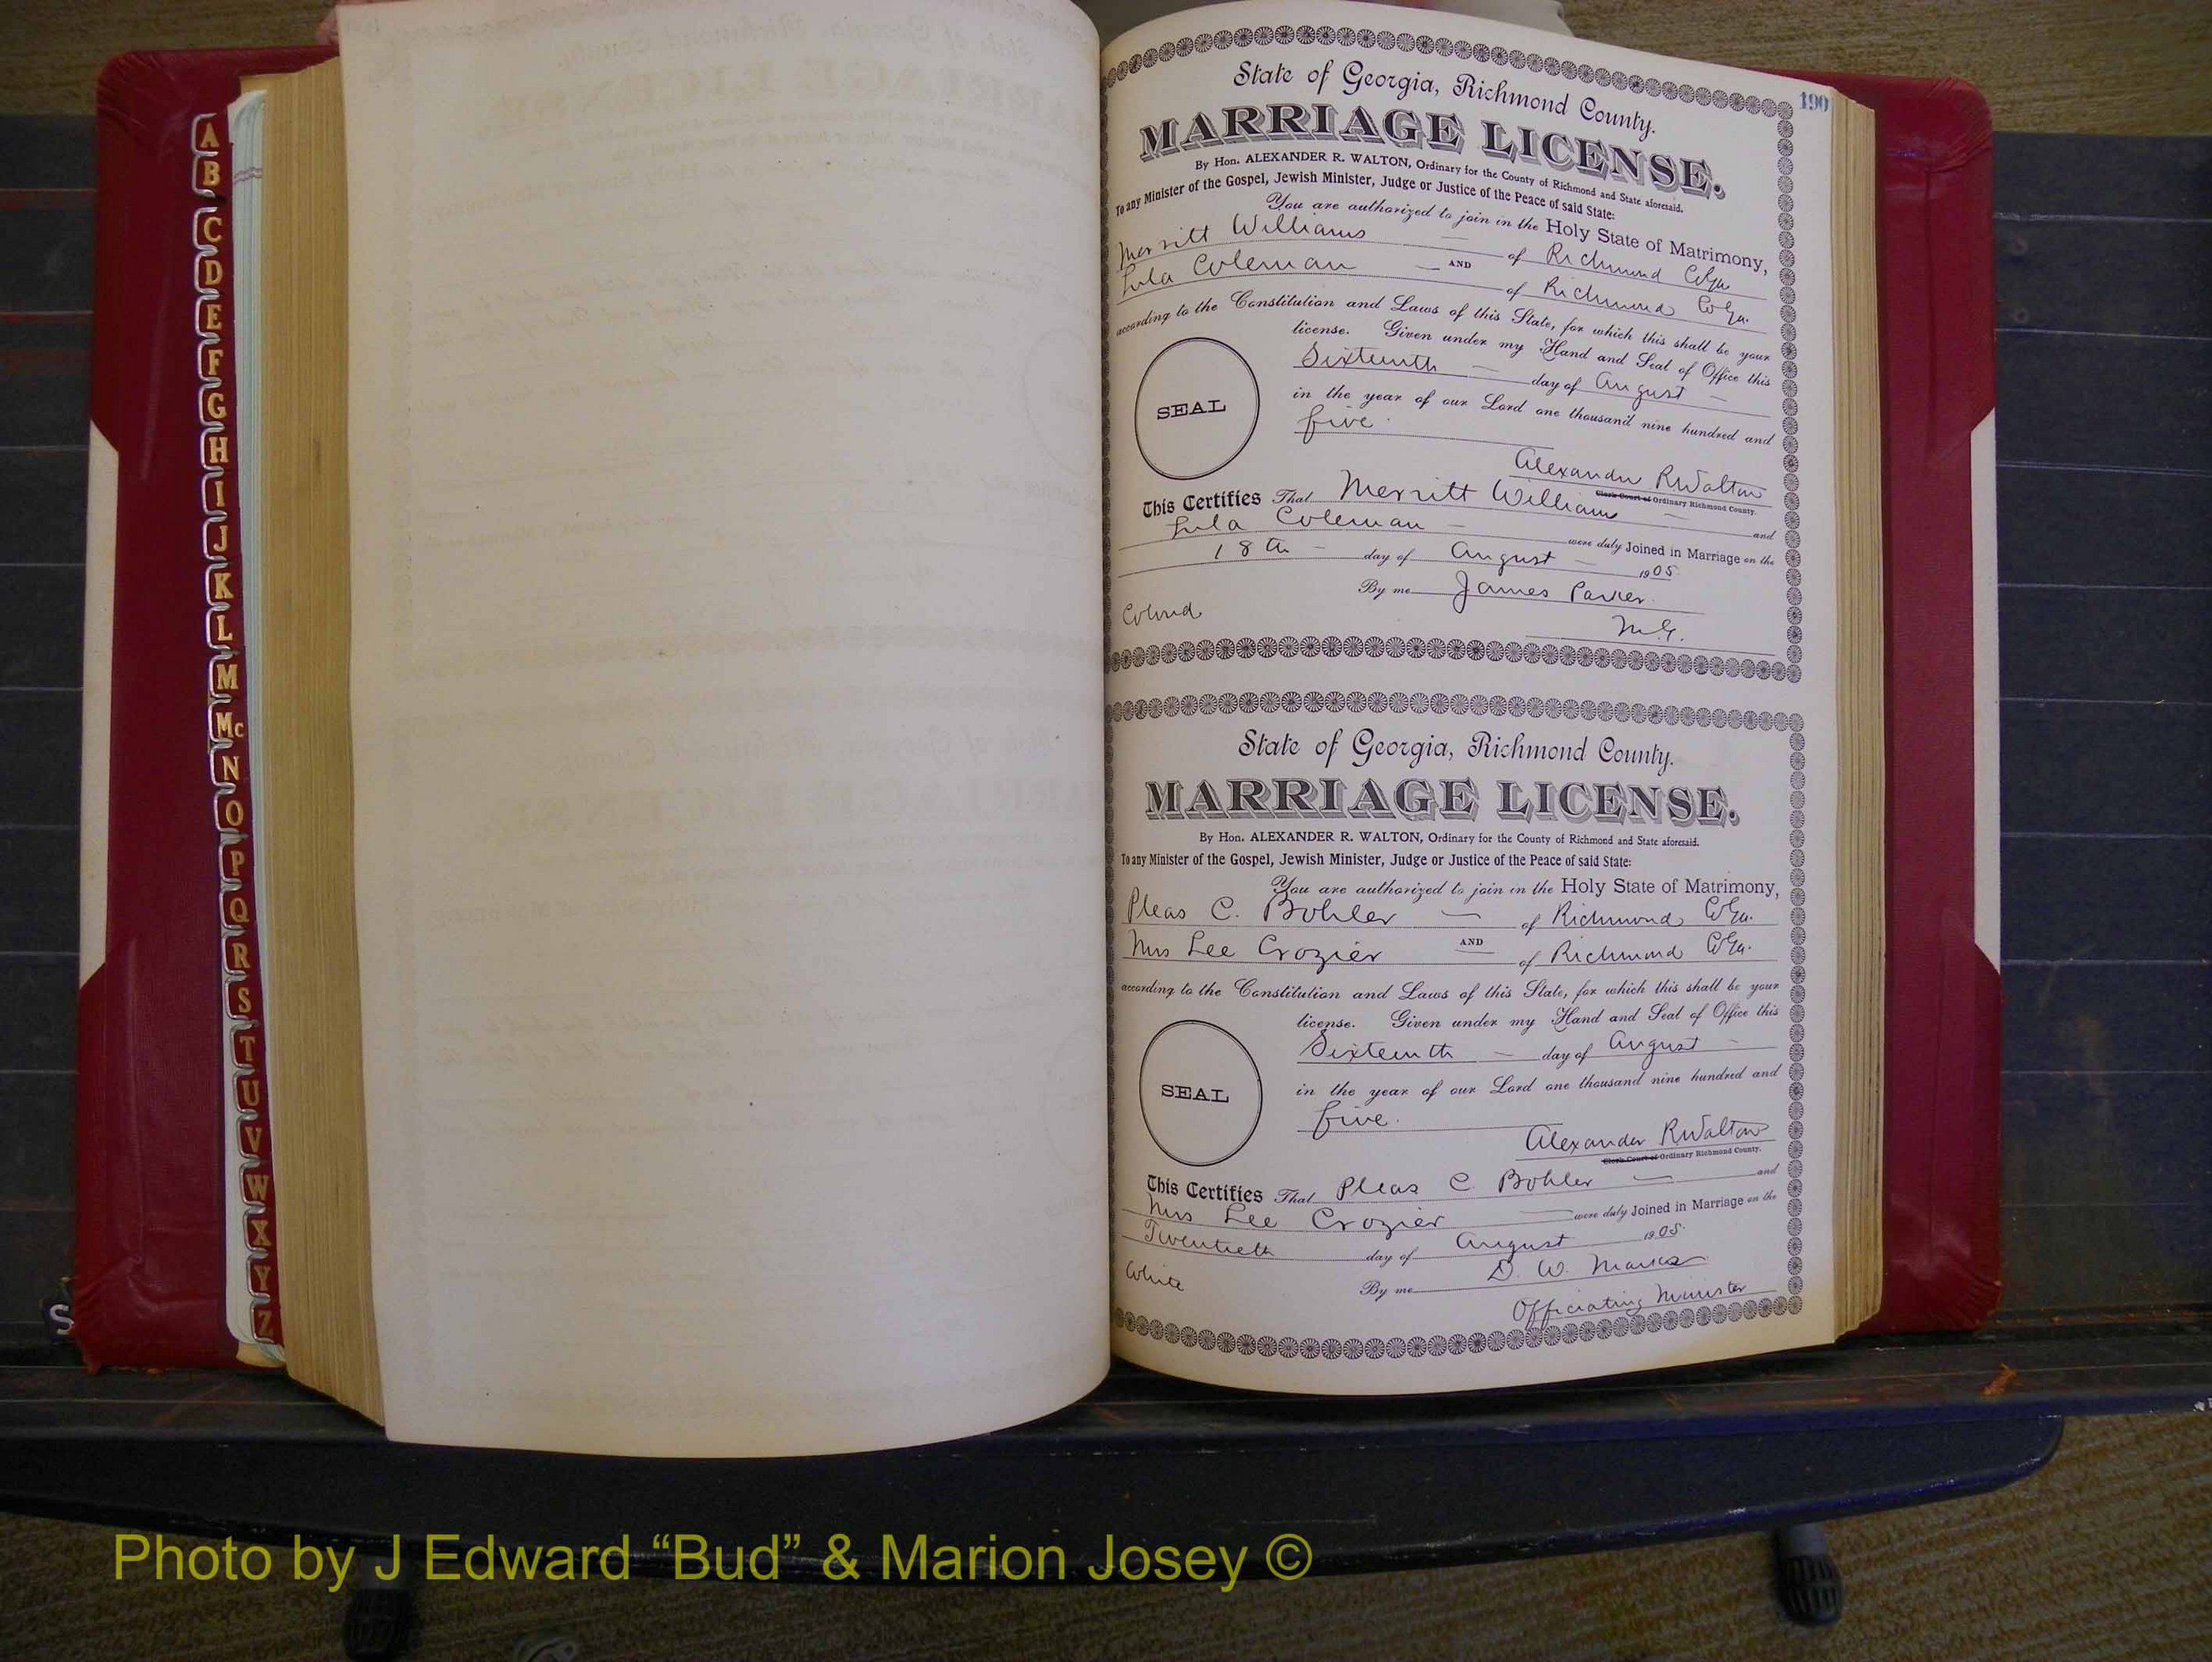 A
B
C
D
E
F
G
H
I
J
K
L
M
Mc
N
O
P
Q
R
S
T
U
V
W
X
Y
Z
190
State of Georgia, Richmond County.
MARRIAGE LICENSE.
By Hon. ALEXANDER R. WALTON, Ordinary for the County of Richmond and State aforesaid.
To any Minister of the Gospel, Jewish Minister, Judge or Justice of the Peace of said State:
You are authorized to join in the Holy State of Matrimony,
Merritt Williams of Richmond Co Ga
AND
Lula Coleman of Richmond Co Ga.
according to the Constitution and Laws of this State, for which this shall be your
license. Given under my Hand and Seal of Office this
Sixteenth day of August
in the year of our Lord one thousand nine hundred and
five.
SEAL
Alexander R Walton
Clerk Court of Ordinary Richmond County.
This Certifies That Merritt Williams and
Lula Coleman were duly Joined in Marriage on the
18th day of August 1905.
By me James Parker.
Colored
M.G.
State of Georgia, Richmond County.
MARRIAGE LICENSE.
By Hon. ALEXANDER R. WALTON, Ordinary for the County of Richmond and State aforesaid.
To any Minister of the Gospel, Jewish Minister, Judge or Justice of the Peace of said State:
You are authorized to join in the Holy State of Matrimony,
Pleas C. Bohler of Richmond Co Ga.
AND
Mrs Lee Crozier of Richmond Co Ga.
according to the Constitution and Laws of this State, for which this shall be your
license. Given under my Hand and Seal of Office this
Sixteenth day of August
in the year of our Lord one thousand nine hundred and
five.
SEAL
Alexander R Walton
Clerk Court of Ordinary Richmond County.
This Certifies That Pleas C. Bohler and
Mrs Lee Crozier were duly Joined in Marriage on the
Twentieth day of August 1905.
White
By me D. W. Marks
Officiating Minister
S
Photo by J Edward “Bud” & Marion Josey ©